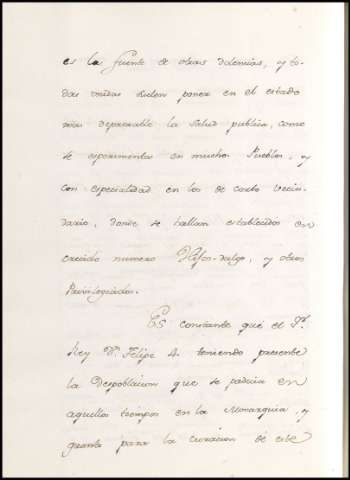 es la fuente de otras dolencias, y to-
das unidas suelen poner en el estado
mas deplorable la salud publica, como
se experimenta en muchos Pueblos, y
con especialidad en los de corto vecin-
dario, donde se hallan establecidos en
crecido numero Hijos-dalgo, y otros
Privilegiados.
Es constante que el Sr.
Rey Dn. Felipe 4. teniendo presente
la Despoblacion que se padecia en
aquellos tiempos en la Monarquia, y
quanto para la curacion de este